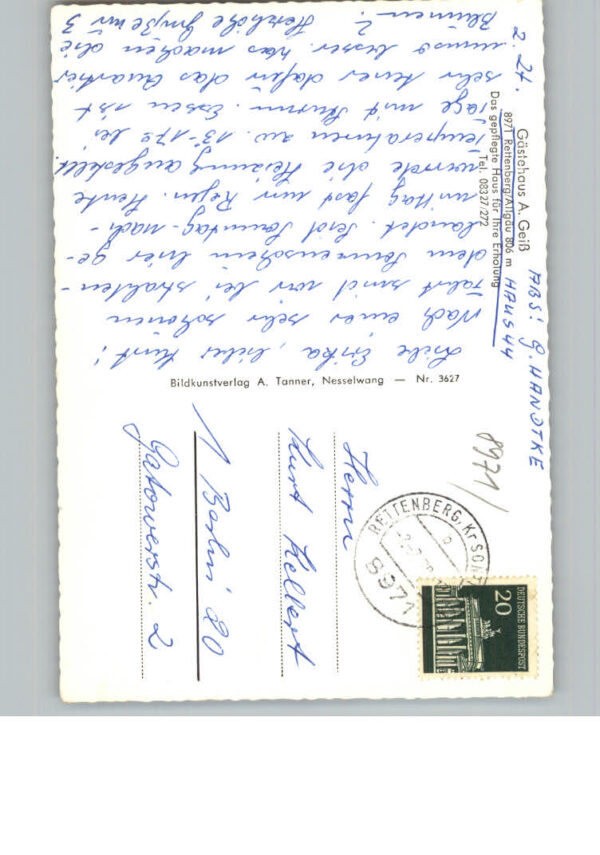 Gästehaus A. Geiß
8971 Rettenberg/Allgäu 806 m
Das gepflegte Haus für Ihre Erholung
Tel. 08327/272
ABS: G. HANDTKE
HAUS 44
Liebe Erika, lieber Kurt!
Nach einer sehr schönen
Fahrt sind wir bei strahlen-
dem Sonnenschein hier ge-
landet. Seit Sonntag-nach-
mittag fast nur Regen. Heute
wurde die Heizung angestellt.
Temperaturen zw. 13-17° bei
Tage mit Sturm. Essen ist
sehr teuer dafür das Quartier
umso besser. Was machen die
Blumen? Herzliche Grüße
Bildkunstverlag A. Tanner, Nesselwang — Nr. 3627
8971/
RETTENBERG, Kr SONT
8971
b
20
DEUTSCHE BUNDESPOST
Herrn
Kurt Kellert
1 Berlin 20
Gatowerstr. 2